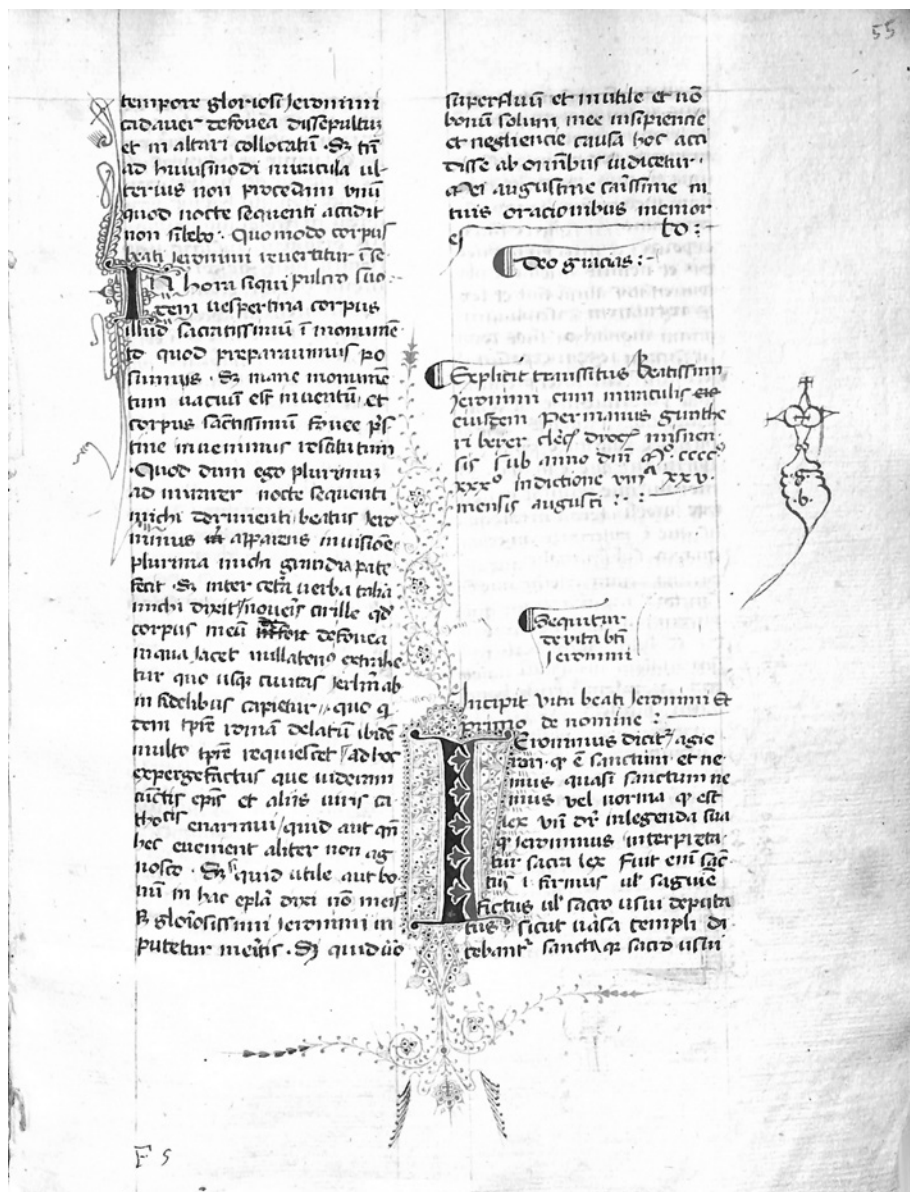 55
tempore gloriosi Jeronimi
cadaver de fovea dissepultuz
et in altari collocatū . Sz tn̄
ad huiusmodi miracula ul-
terius non procedam vnū
quod nocte sequenti accidit
non silebo . Quomodo corpus
beati Jeronimi revertitur ī se-
pulcro suo
IN hora siqui
dem vespertina corpus
illud sacratissimū ī monumē
to quod preparavimus po
suimus . Sz mane monumē
tum vacuum est inventū et
corpus sanctissimū fovee ps
tine invenimus restitutum
Quod dum ego plurimuz
ad mirarer nocte sequenti
michi dormienti beatus Jero
nimus apparens in visione
plurima michi grandia pate
fecit . Sz inter cetā verba talia
michi dixit / noveis cirille qd
corpus meū de fovea
in qua jacet nullateno extrahe
tur quo usqz civitas Jerlm̄ ab
in fidelibus capietur quo q
dem tpre romā delatū ibidē
multo tpre requiescet / ad hoc
expergefactus que videram
cūctis epis et aliis viris ca
tholicis enarravi / quid aut qn̄
hec evenient aliter non ag
nosco . Sz quid utile aut bo
nū in hac epla dixi nō meis
sz gloiosissimi Jeronimi in
putetur meitis . Sz quid vo
superfluū et inutile et nō
bonū solum mee insipiencie
et negliencie causa hoc acci
disse ab omībus iudicetur .
Mei augustine carissime in
tuis oracionibus memor
esto :
Deo gracias :
Explicit transsitus beatissimi
Jeronimi cum miraculis
eiusdem Per manus gunthe
ri berer clerici dioc misnen
sis sub anno dni Mo cccco
xxxo indictione viiia xxv
mensis augusti :
.a.
.b.
Sequitur
de vita bti
Jeronimi
Incipit vita beati Jeronimi Et
primo de nomine :
IEronimus dicitr agie
ron . qr ē sanctum et ne
mus quasi sanctum ne
mus vel norma qr est
lex vn̄ dr in legenda sua
qr Jeronimus interpreta
tur sacra lex Fuit enī sāc
tus i firmus ul saguīe
tīctus ul sacro usui deputa
tus sicut vasa templi di
cebantr sancta qr sacro usui
F 5